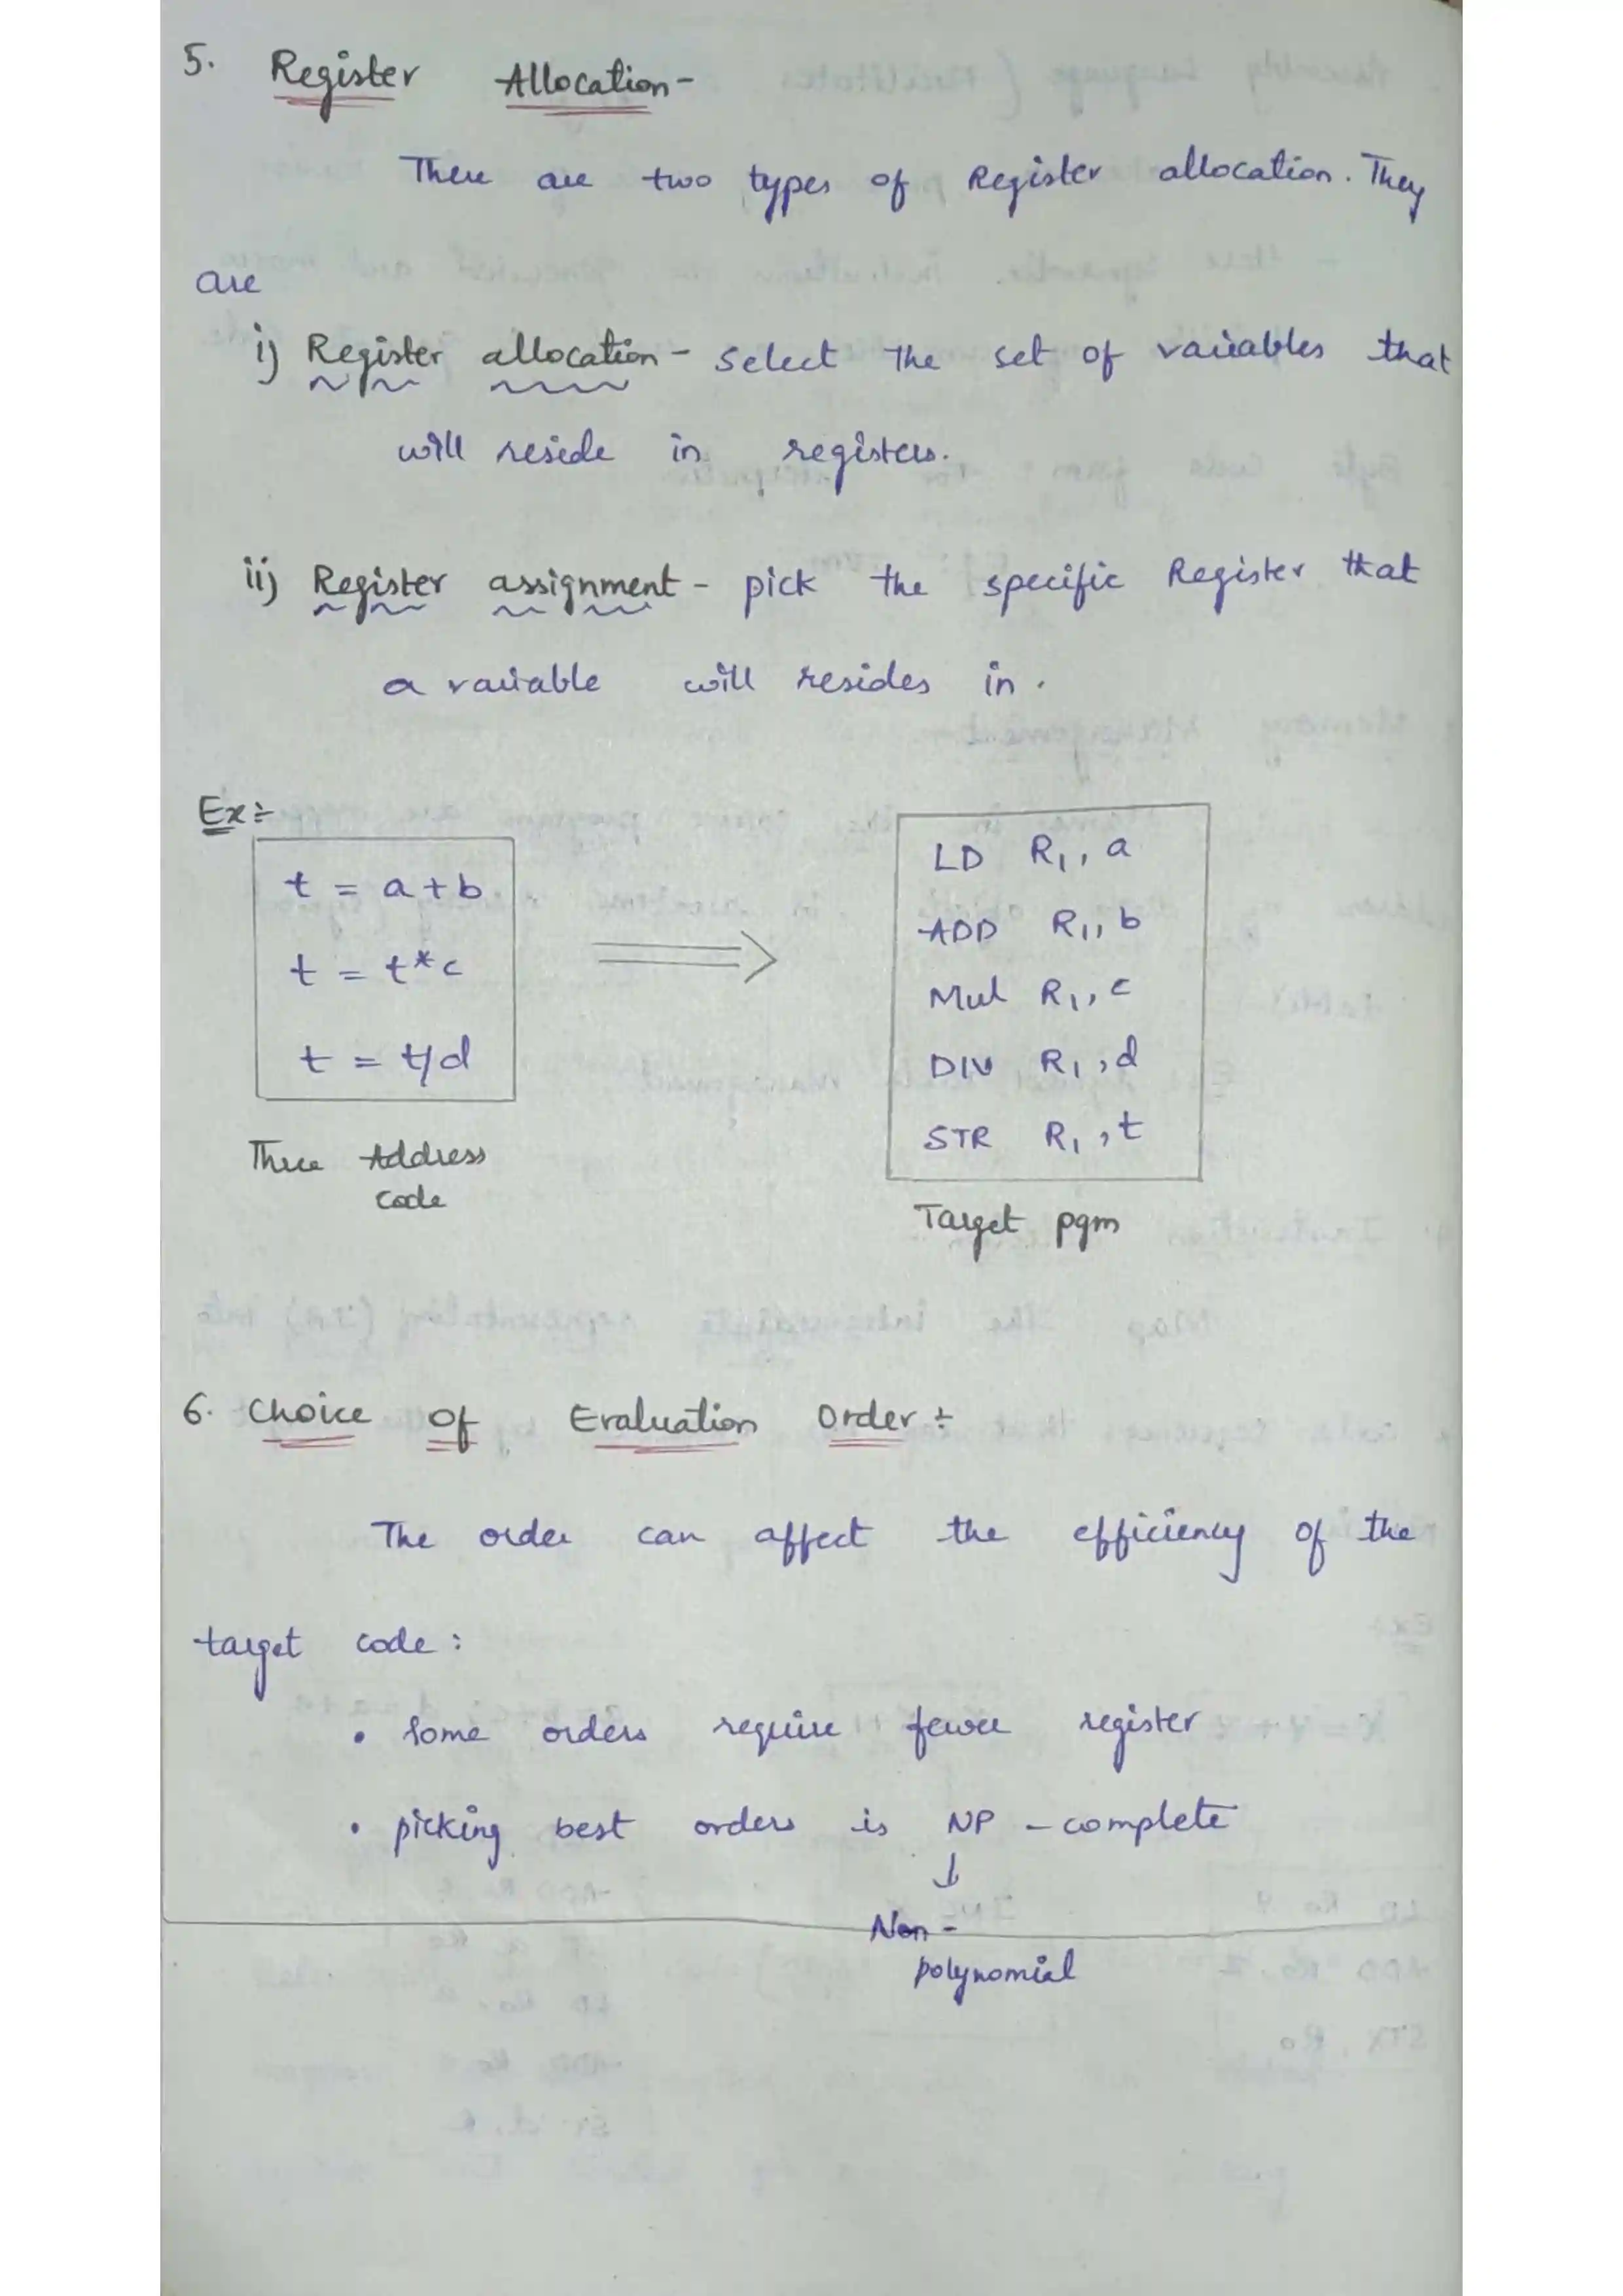 5. Register Allocation -
There are two types of Register allocation. They
are
i) Register allocation - select the set of variables that
will reside in registers.
ii) Register assignment - pick the specific Register that
a variable will resides in.
Ex:-
t = a + b
t = t * c
t = t/d
Three Address
code
LD R1, a
ADD R1, b
Mul R1, c
DIV R1, d
STR R1, t
Target pgm
6. Choice of Evaluation Order:-
The order can affect the efficiency of the
target code:
• Some orders require fewer register
• picking best orders is NP - complete
↓
Non -
polynomial